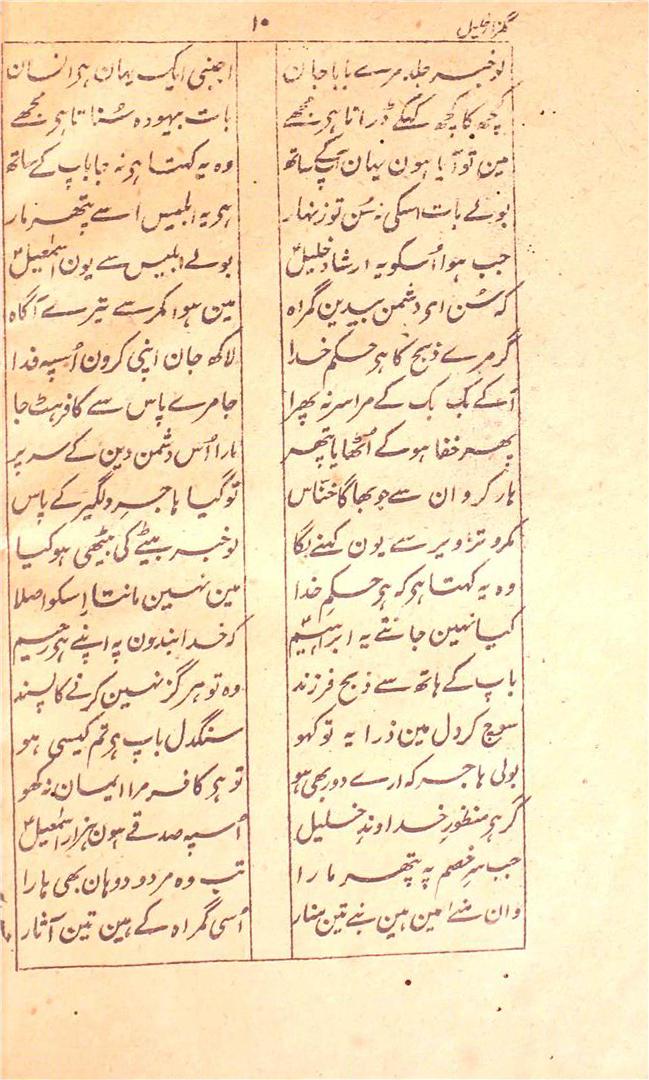 گلزار خلیل
۱۰
لو خبر جلد مرے بابا جان اجنبی ایک یہان ہی انسان
کچھ کا کچھ کہکے ڈراتا ہی مجھے بات بیہودہ سُناتا ہی مجھے
مین تو آیا ہون یہان آپکے ساتھ وہ یہ کہتا ہی نہ جا باپ کے ساتھ
بولے بات اسکی نہ سُن تو زنہار ہی یہ ابلیس اسے پتھر مار
جب ہوا اُسکو یہ ارشاد خلیل بولے ابلیس سے یون اسمٰعیل
کہ سُن ای دشمن بیدین گمراہ مین ہوا مکر سے تیرے آگاہ
گر مرے ذبح کا ہی حکم خدا لاکھ جان اپنی کرون اُسپہ فدا
آکے بک بک کے مرا سر نہ پھرا جا مرے پاس سے کافر ہٹ جا
پھر خفا ہوکے اُٹھایا پتھر مارا اُس دشمن دین کے سر پر
ہار کر وان سے جو بھاگا خناس تو گیا ہاجرہ دلگیر کے پاس
مکر و تزویر سے یون کہنے لگا لو خبر بیٹے کی بیٹھی ہو کیا
وہ یہ کہتا ہی کہ ہی حکم خدا مین نہین مانتا اِسکو اصلا
کیا نہین جانتے یہ ابراہیم کہ خدا بندون پہ اپنے ہی رحیم
باپ کے ہاتھ سے ذبح فرزند وہ تو ہرگز نہین کرنے کا پسند
سوچ کر دل مین ذرا یہ تو کہو سنگدل باپ ہی تم کیسی ہو
بولی ہاجرہ کہ ارے دور بھی ہو تو ہی کافر مرا ایمان نہ کھو
گر ہی منظورِ خداوندِ خلیل اُسپہ صدقے ہون ہزار اسمٰعیل
جب سرِ خصم پہ پتھر مارا تب وہ مردود وہان بھی ہارا
وان منے امین ہین بنے تین منار اُسی گمراہ کے ہین تین آثار